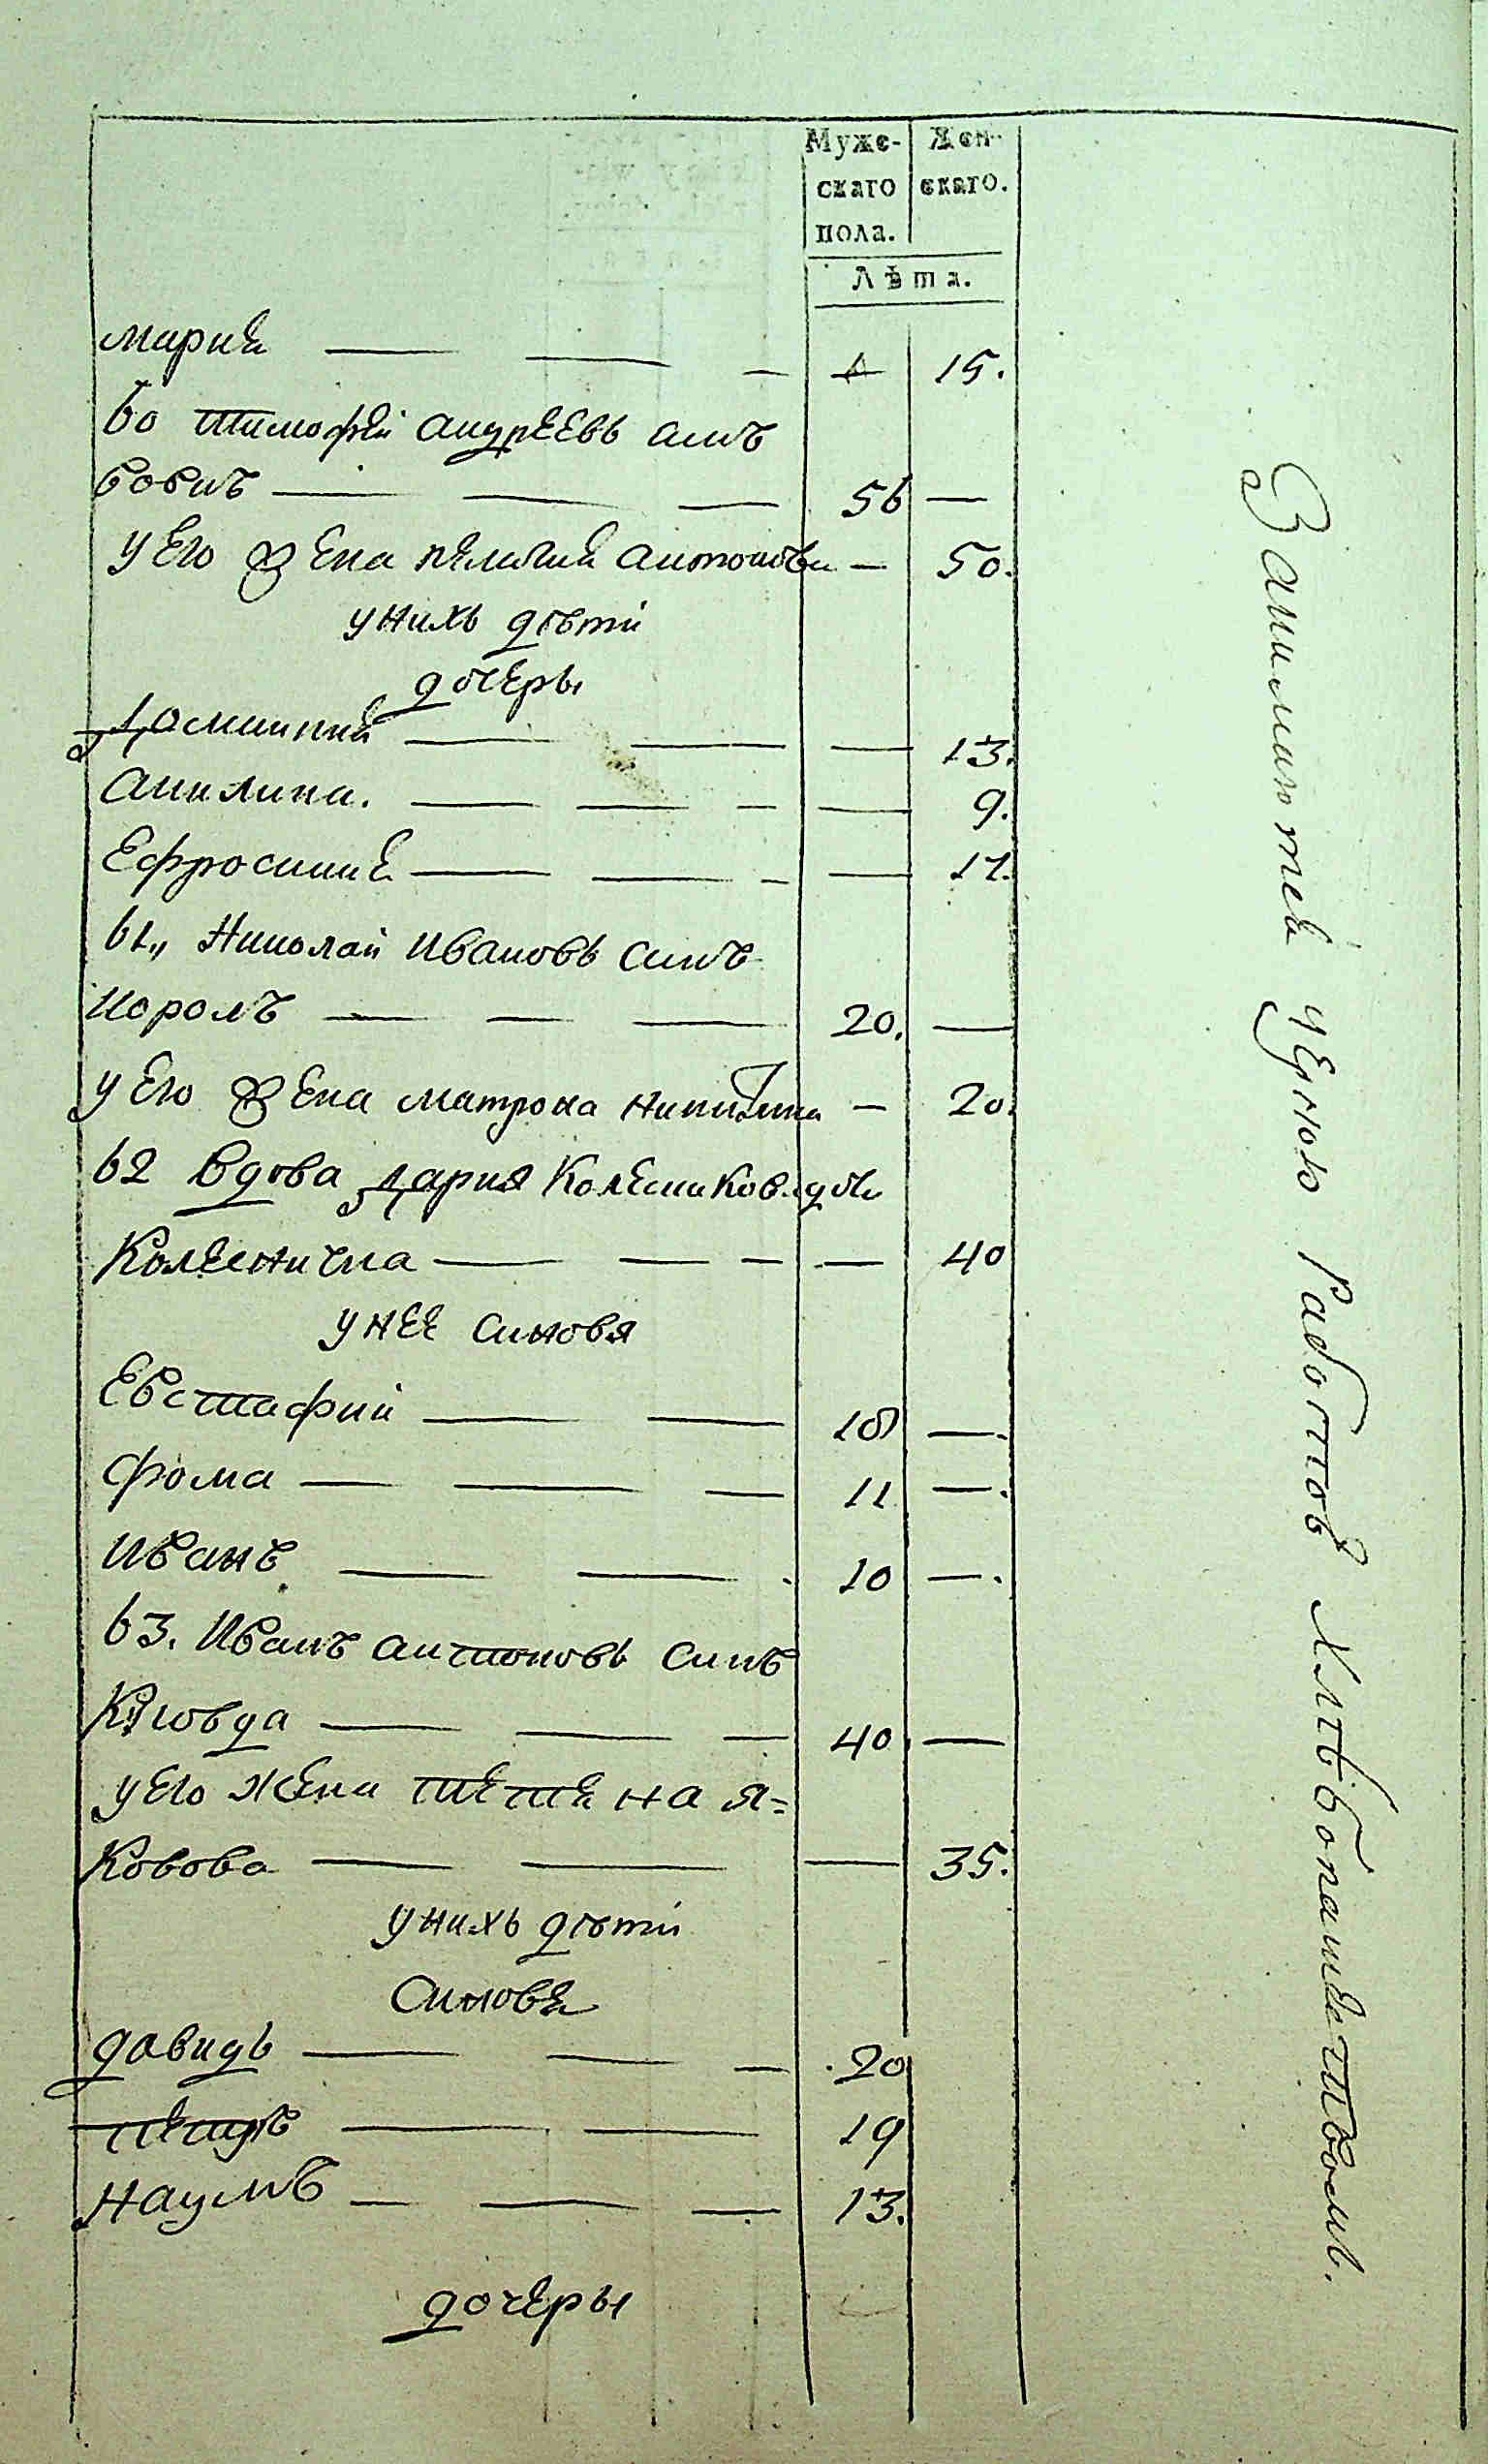 Муже- Жен-
скаго скаго.
пола.
Лѣта.
мария — — — — 15.
60 тимофей андреевъ синъ
вовкъ — — — 56 —
у его жена пелагия антонова — 50.
у нихъ дѣти
дочеры
Домникия — — — 13.
Акилина. — — — — 9.
Ефросиния — — — — 17.
61„ Николай Ивановъ синъ
Король — — — 20. —
у его жена матрона никитина — 20.
62 Вдова Дария Колесникова дочь
Колесничка — — — — 40
у нее синовя
Евстафий — — 18 —.
фома — — — 11 —.
Иванъ — — 10 —.
63. Иванъ антоновъ синъ
Кѣовда — — — 40 —
у его жена тетяна я=
Ковова — — — 35.
у нихъ дѣти
Синовя
давидъ — — — 20
петръ — — 19
наумъ — — — 13.
дочеры
Занимаются черною работою хлѣбопашетвомъ.